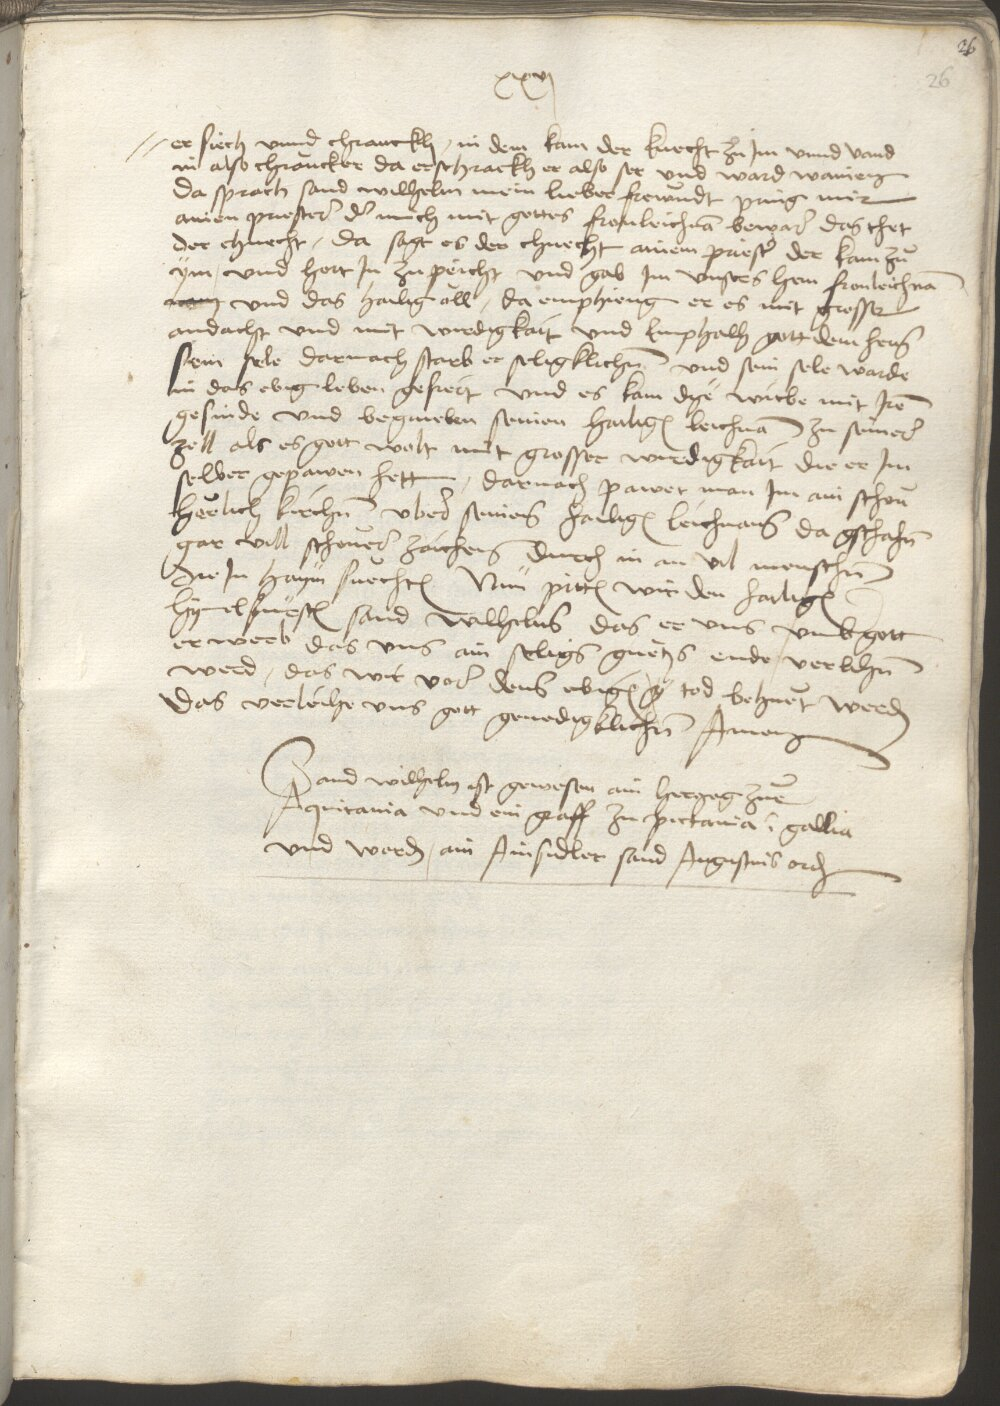 26
xxvj
26
er siech unnd chranckh, in dem kam der knecht zu Im unnd vand
in also chrancker da erschrackh er also ser und ward wainen
Da sprach sand Wilhelm mein lieber frewndt pring mir
ainen priester der mich mit gottes fronleichnam bewar das thet
der chnecht, da sagt es der chnecht ainem priester der kam zu
ym, und hort In zu peicht und gab Im unsers hern fronleichnam
und das hailig öll, da emphieng er es mit grosser
andacht und mit wirdigkait und emphalh gott dem hern
sein sele darnach starb er seligklichen und sein sele warde
in das ebig leben gefiert und es kam dye witbe mit Iren
gesinde und begrueben seinen hailigen leichnam zu seiner
zell als es gott wolt mit grosser wirdigkait die er Im
selber gepawen hett, darnach pawet man Im ain schon
herlich kirchen uber seinen hailigen leichnam da gschahen
gar vill schoner zaichens durch in an vil menschen
die In haym suechten Nun pitten wir den hailigen
hymelfursten sand Wilhelm das er uns umb gott
erwerb das uns ain seligs guets ende verlihen
werd, das wir vor dem ebigen tod behuet werden
Das verleihe uns gott genedigklichen Amen
Sand Wilhelm ist gewesen ain herzog zue
Aquitania und ein graff zu pictania in gallia
und worden, ain Ainsidler sand Augustins orden